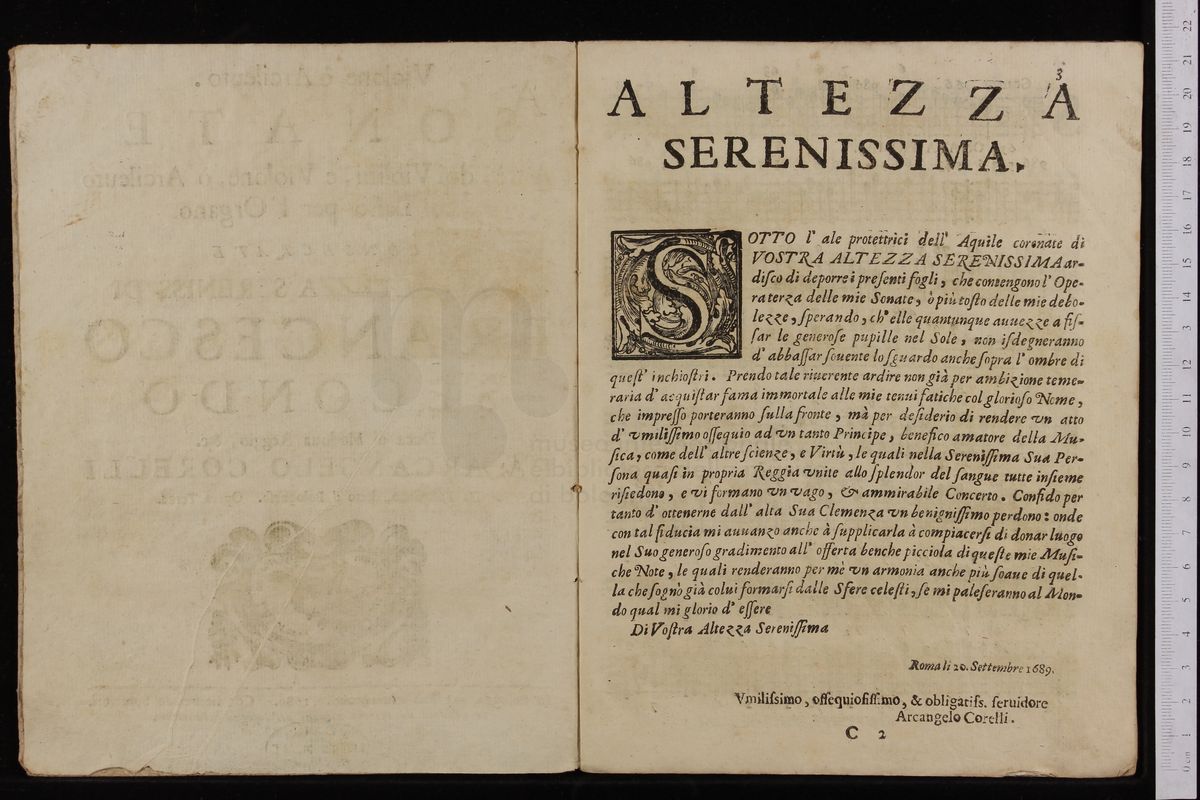 3
ALTEZZA
SERENISSIMA.
SOTTO l' ale protettrici dell' Aquile coronate di
VOSTRA ALTEZZA SERENISSIMA ar-
diſco di deporre i preſenti fogli, che contengono l' Ope-
ra terza delle mie Sonate, ò più toſto delle mie debo-
lezze, ſperando, ch' elle quantunque auuezze a fiſ-
ſar le generoſe pupille nel Sole, non iſdegneranno
d' abbaſſar ſouente lo ſguardo anche ſopra l' ombre di
queſt' inchioſtri. Prendo tale riuerente ardire non già per ambizione teme-
raria d' acquiſtar fama immortale alle mie tenui fatiche col glorioſo Nome,
che impreſſo porteranno ſulla fronte, mà per deſiderio di rendere vn atto
d' vmiliſſimo oſſequio ad vn tanto Principe, benefico amatore della Mu-
ſica, come dell' altre ſcienze, e Virtù, le quali nella Sereniſſima Sua Per-
ſona quaſi in propria Reggia vnite allo ſplendor del ſangue tutte inſieme
riſiedono, e vi formano vn vago, & ammirabile Concerto. Confido per
tanto d' ottenerne dall' alta Sua Clemenza vn benigniſſimo perdono: onde
con tal fiducia mi auuanzo anche à ſupplicarla à compiacerſi di donar luogo
nel Suo generoſo gradimento all' offerta benche picciola di queſte mie Muſi-
che Note, le quali renderanno per mè vn armonia anche più ſoaue di quel-
la che ſognò già colui formarſi dalle Sfere celeſti, ſe mi paleſeranno al Mon-
do qual mi glorio d' eſſere
Di Voſtra Altezza Sereniſſima
Roma li 20. Settembre 1689.
Vmiliſsimo, oſſequioſiſſimo, & obligatiſs. ſeruidore
Arcangelo Corelli.
C 2